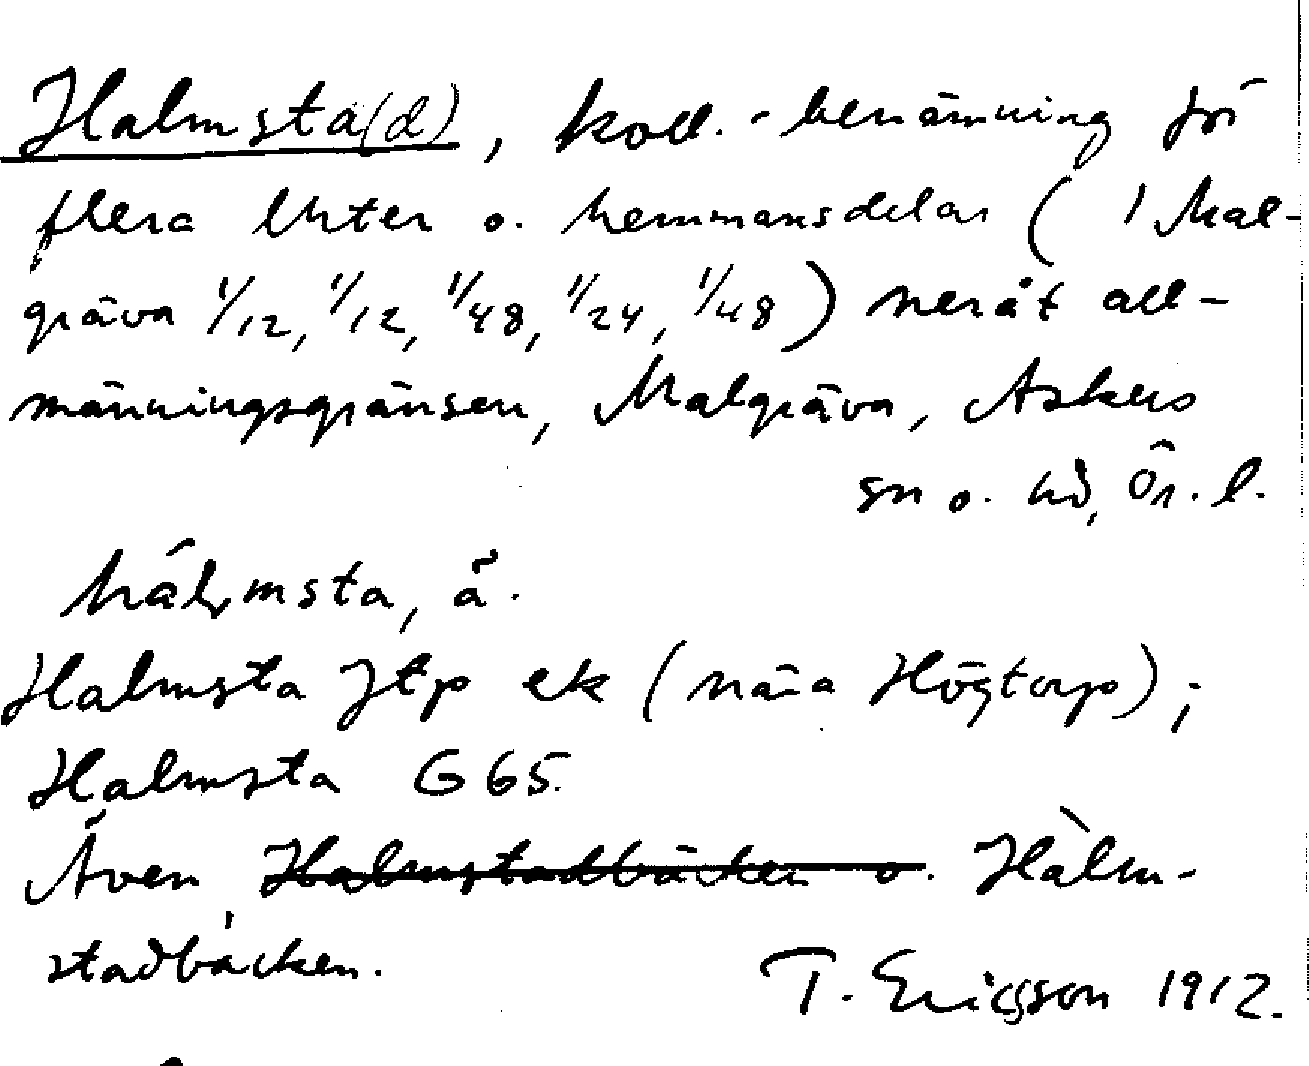 Halmsta(d), koll.-benämning för
flera lhter o. hemmansdelar (i Mal-
gräva 1/12, 1/12, 1/48, 1/24, 1/48) neråt all-
männingsgränsen, Malgräva, Askers
sn o. hd, Ör. l.
hálmsta, å.
Halmsta Jtp ek (nära Högtorp);
Halmsta G 65.
Även Halmstadbäcken o. Hàlm-
stadbäcken.
T. Ericsson 1912.